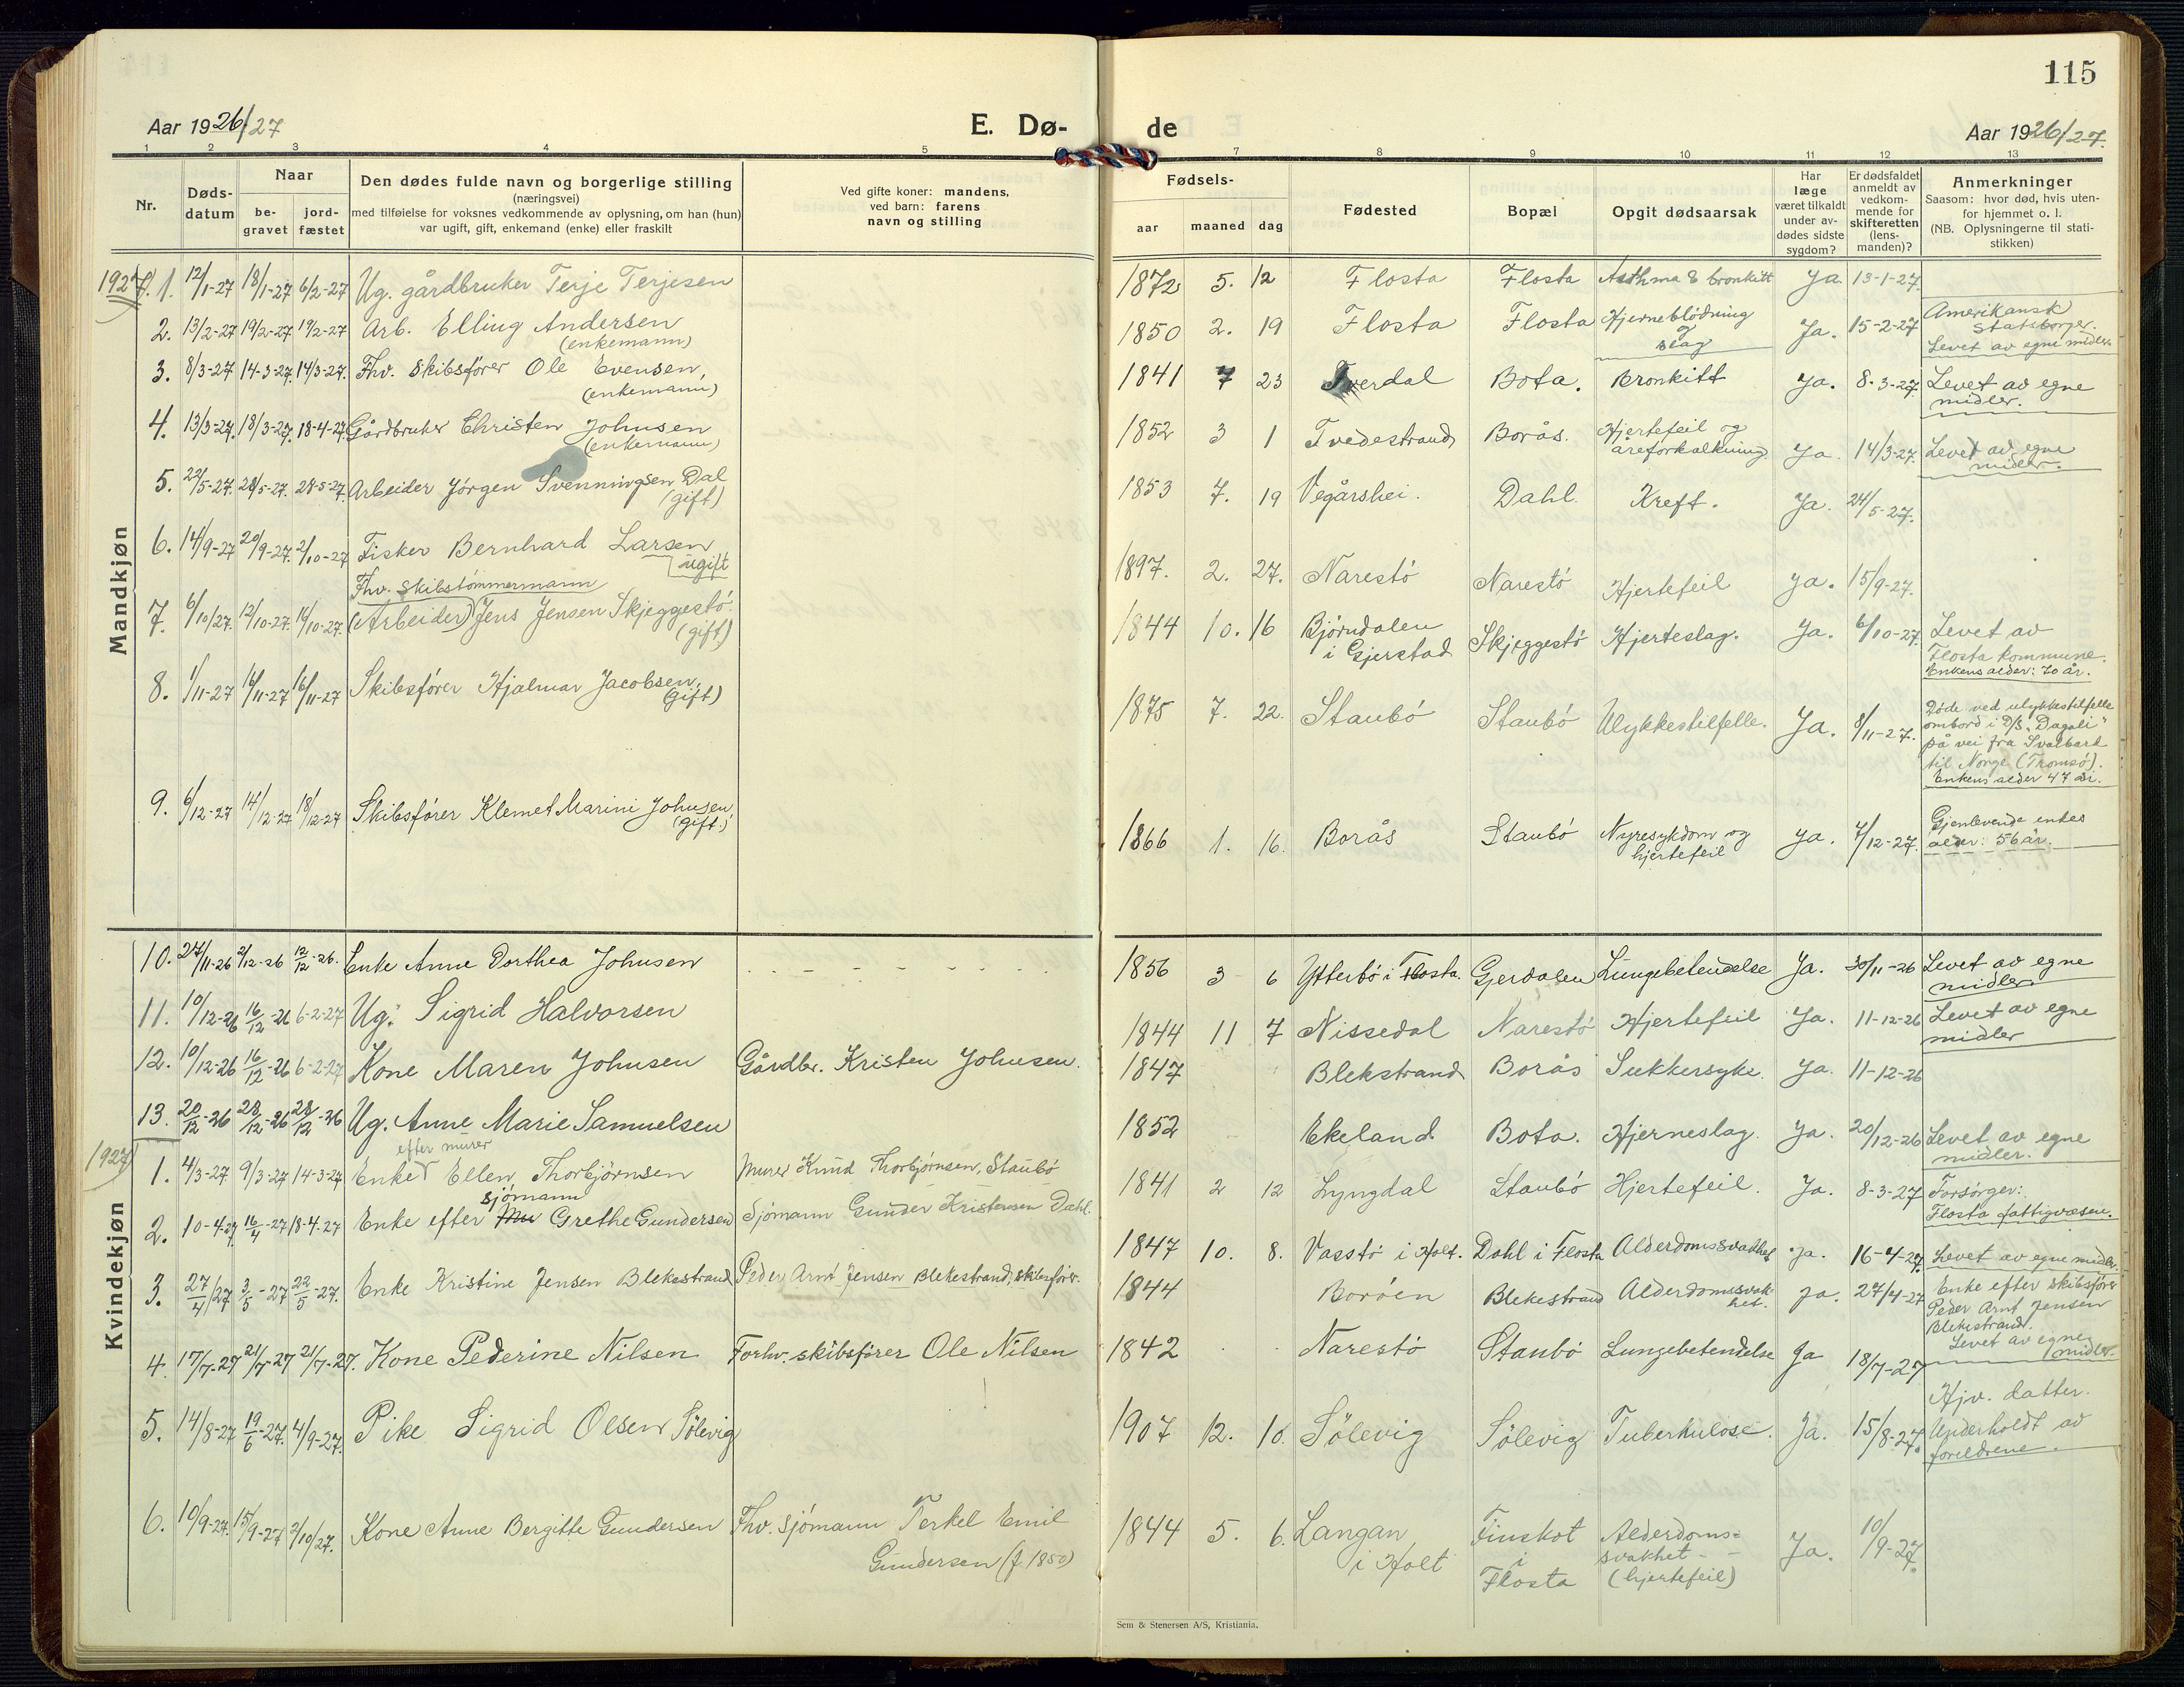 115
Aar 1926/27
E. Dø-
de
Aar 1926/27.
1 2 3 4 5 7 8 9 10 11 12 13
Nr.
Døds-
datum
Naar
be-
gravet
jord-
fæstet
Den dødes fulde navn og borgerlige stilling
(næringsvei)
med tilføielse for voksnes vedkommende av oplysning, om han (hun)
var ugift, gift, enkemand (enke) eller fraskilt
Ved gifte koner: mandens,
ved barn: farens
navn og stilling
Fødsels-
aar maaned dag
Fødested
Bopæl
Opgit dødsaarsak
Har
læge
været tilkaldt
under av-
dødes sidste
sygdom?
Er dødsfaldet
anmeldt av
vedkom-
mende for
skifteretten
(lens-
manden)?
Anmerkninger
Saasom: hvor død, hvis uten-
for hjemmet o. l.
(NB. Oplysningerne til stati-
stikken)
Mandkjøn
1927. 1. 12/1-27 18/1-27 6/2-27 Ug. gårdbruker Terje Terjesen 1872 5. 12 Flosta Flosta Asthma & bronkitt Ja. 13-1-27.
2. 13/2-27 19/2-27 19/2-27 Arb. Elling Andersen
(enkemann)
1850 2. 19 Flosta Flosta Hjerneblödning
og
slag
Ja. 15-2-27
Amerikansk
Statsborger.
Levet av egne midler.
3. 8/3-27 14-3-27. 14/3-27. Fhv. Skibsförer Ole Evensen,
(enkemann)
1841 7 23 Tverdal Bota. Bronkitt Ja. 8-3-27.
Levet av egne
midler.
4. 13/3-27. 18/3-27. 18-4-27. Gårdbruker Christen Johnsen
(enkemann)
1852 3 1 Tvedestrand Borås. Hjertefeil og
åreforkalkning.
Ja. 14/3-27.
Levet av egne
midler.
5. 22/5-27. 28/5-27. 28-5-27. Arbeider Jörgen Svenningsen Dal
(gift)
1853 7. 19 Vegårshei. Dahl. Kreft. Ja. 24/5-27.
6. 14/9-27 20/9-27. 2/10-27 Fisker Bernhard Larsen
ugift
1897. 2. 27. Narestö Narestö Hjertefeil Ja. 15/9-27.
Fhv. Skibstömmermann
7. 6/10/27. 12/10-27. 16/10-27. (Arbeider) Jens Jensen Skjeggestö.
(gift)
1844 10. 16 Björndalen
i Gjerstad
Skjeggestö Hjerteslag. Ja. 6/10-27.
Levet av
Flosta kommune.
Enkens alder: 70 år.
8. 1/11-27 16/11-27 16/11-27 Skibsförer Hjalmar Jacobsen,
(gift)
1875 7. 22. Staubö Staubö Ulykkestilfelle. Ja. 8/11-27.
Döde ved ulykkestilfelle
ombord i D/S. "Dagali"
på vei fra Svalbard
til Norge (Tromsö).
Enkens alder 47 år.
9. 6/12-27 14/12-27 18/12-27 Skibsförer Klemet Marini Johnsen
(gift)
1866 1. 16. Borås Staubö Nyresykdom og
hjertefeil
Ja. 7/12-27.
Gjenlevende enkes
alder: 56 år.
Kvindekjøn
10. 27/11-26 2/12-26 12/12-26. Enke Anne Dorthea Johnsen 1856 3 6 Ytterbö i Flosta. Gjerdalen Lungebetendelse Ja. 30/11-26
Levet av egne
midler
11. 10/12-26 16/12-26 6-2-27 Ug. Sigrid Halvorsen 1844 11 7 Nissedal Narestö Hjertefeil Ja. 11-12-26
Levet av egne
midler
12. 10/12-26 16/12-26 6-2-27 Kone Maren Johnsen Gårdbr. Kristen Johnsen. 1847 Blekstrand Borås Sukkersyke. Ja. 11-12-26
13. 20/12-26 28/12-26 28/12-26 Ug. Anne Marie Samuelsen 1852 Ekeland Bota. Hjerneslag. Ja. 20/12-26
Levet av egne
midler.
1927
efter murer
1. 4/3-27 9/3-27 14-3-27 Enke Ellen Thorbjörnsen Murer Knud Thorbjörnsen, Staubö 1841 2 12 Lyngdal Staubö Hjertefeil. Ja. 8-3-27
Forsörger:
Flosta fattigvæsen.
sjömann
2. 10-4-27. 16/4-27 18-4-27 Enke efter Mu Grethe Gundersen Sjömann Gunder Kristensen Dahl. 1847 10. 8. Vasstö i Holt. Dahl i Flosta Alderdomssvakhet Ja. 16-4-27.
Levet av egne midler.
3. 27/4/27 3/5-27 22/5-27. Enke Kristine Jensen Blekestrand Peder Arnt Jensen Blekestrand, skibsförer. 1844 Boröen Blekestrand Alderdomssvak-
het.
Ja. 27/4-27
Enke efter skibsförer
Peder Arnt Jensen
Blekestrand.
Levet av egne
midler.
4. 17/7-27 21/7-27 21/7-27. Kone Pederine Nilsen Forhv. skibsförer Ole Nilsen 1842 Narestö Staubö Lungebetendelse Ja 18/7-27
5. 14/8-27 19/6-27. 4/9-27. Pike Sigrid Olsen Sölevig 1907 12. 10. Sölevig Sölevig Tuberkulose. Ja. 15/8-27.
Hjv. datter.
Underholdt av
foreldrene.
6. 10/9-27. 15/9-27 2/10/27. Kone Anne Bergitte Gundersen Fhv. sjömann Terkel Emil
Gundersen (f. 1850)
1844 5. 6. Langan
i Holt
Finskot
i
Flosta
Alderdoms-
svakhet
(hjertefeil)
Ja. 10/9-27.
Sem & Stenersen A/S, Kristiania.